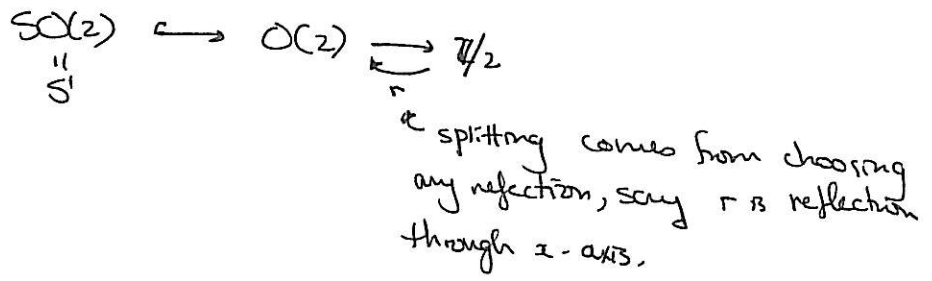 SO(2) ↪ O(2) ⇄ ℤ/2
"
S¹
r
splitting comes from choosing
any refection, say r is reflection
through x-axis.